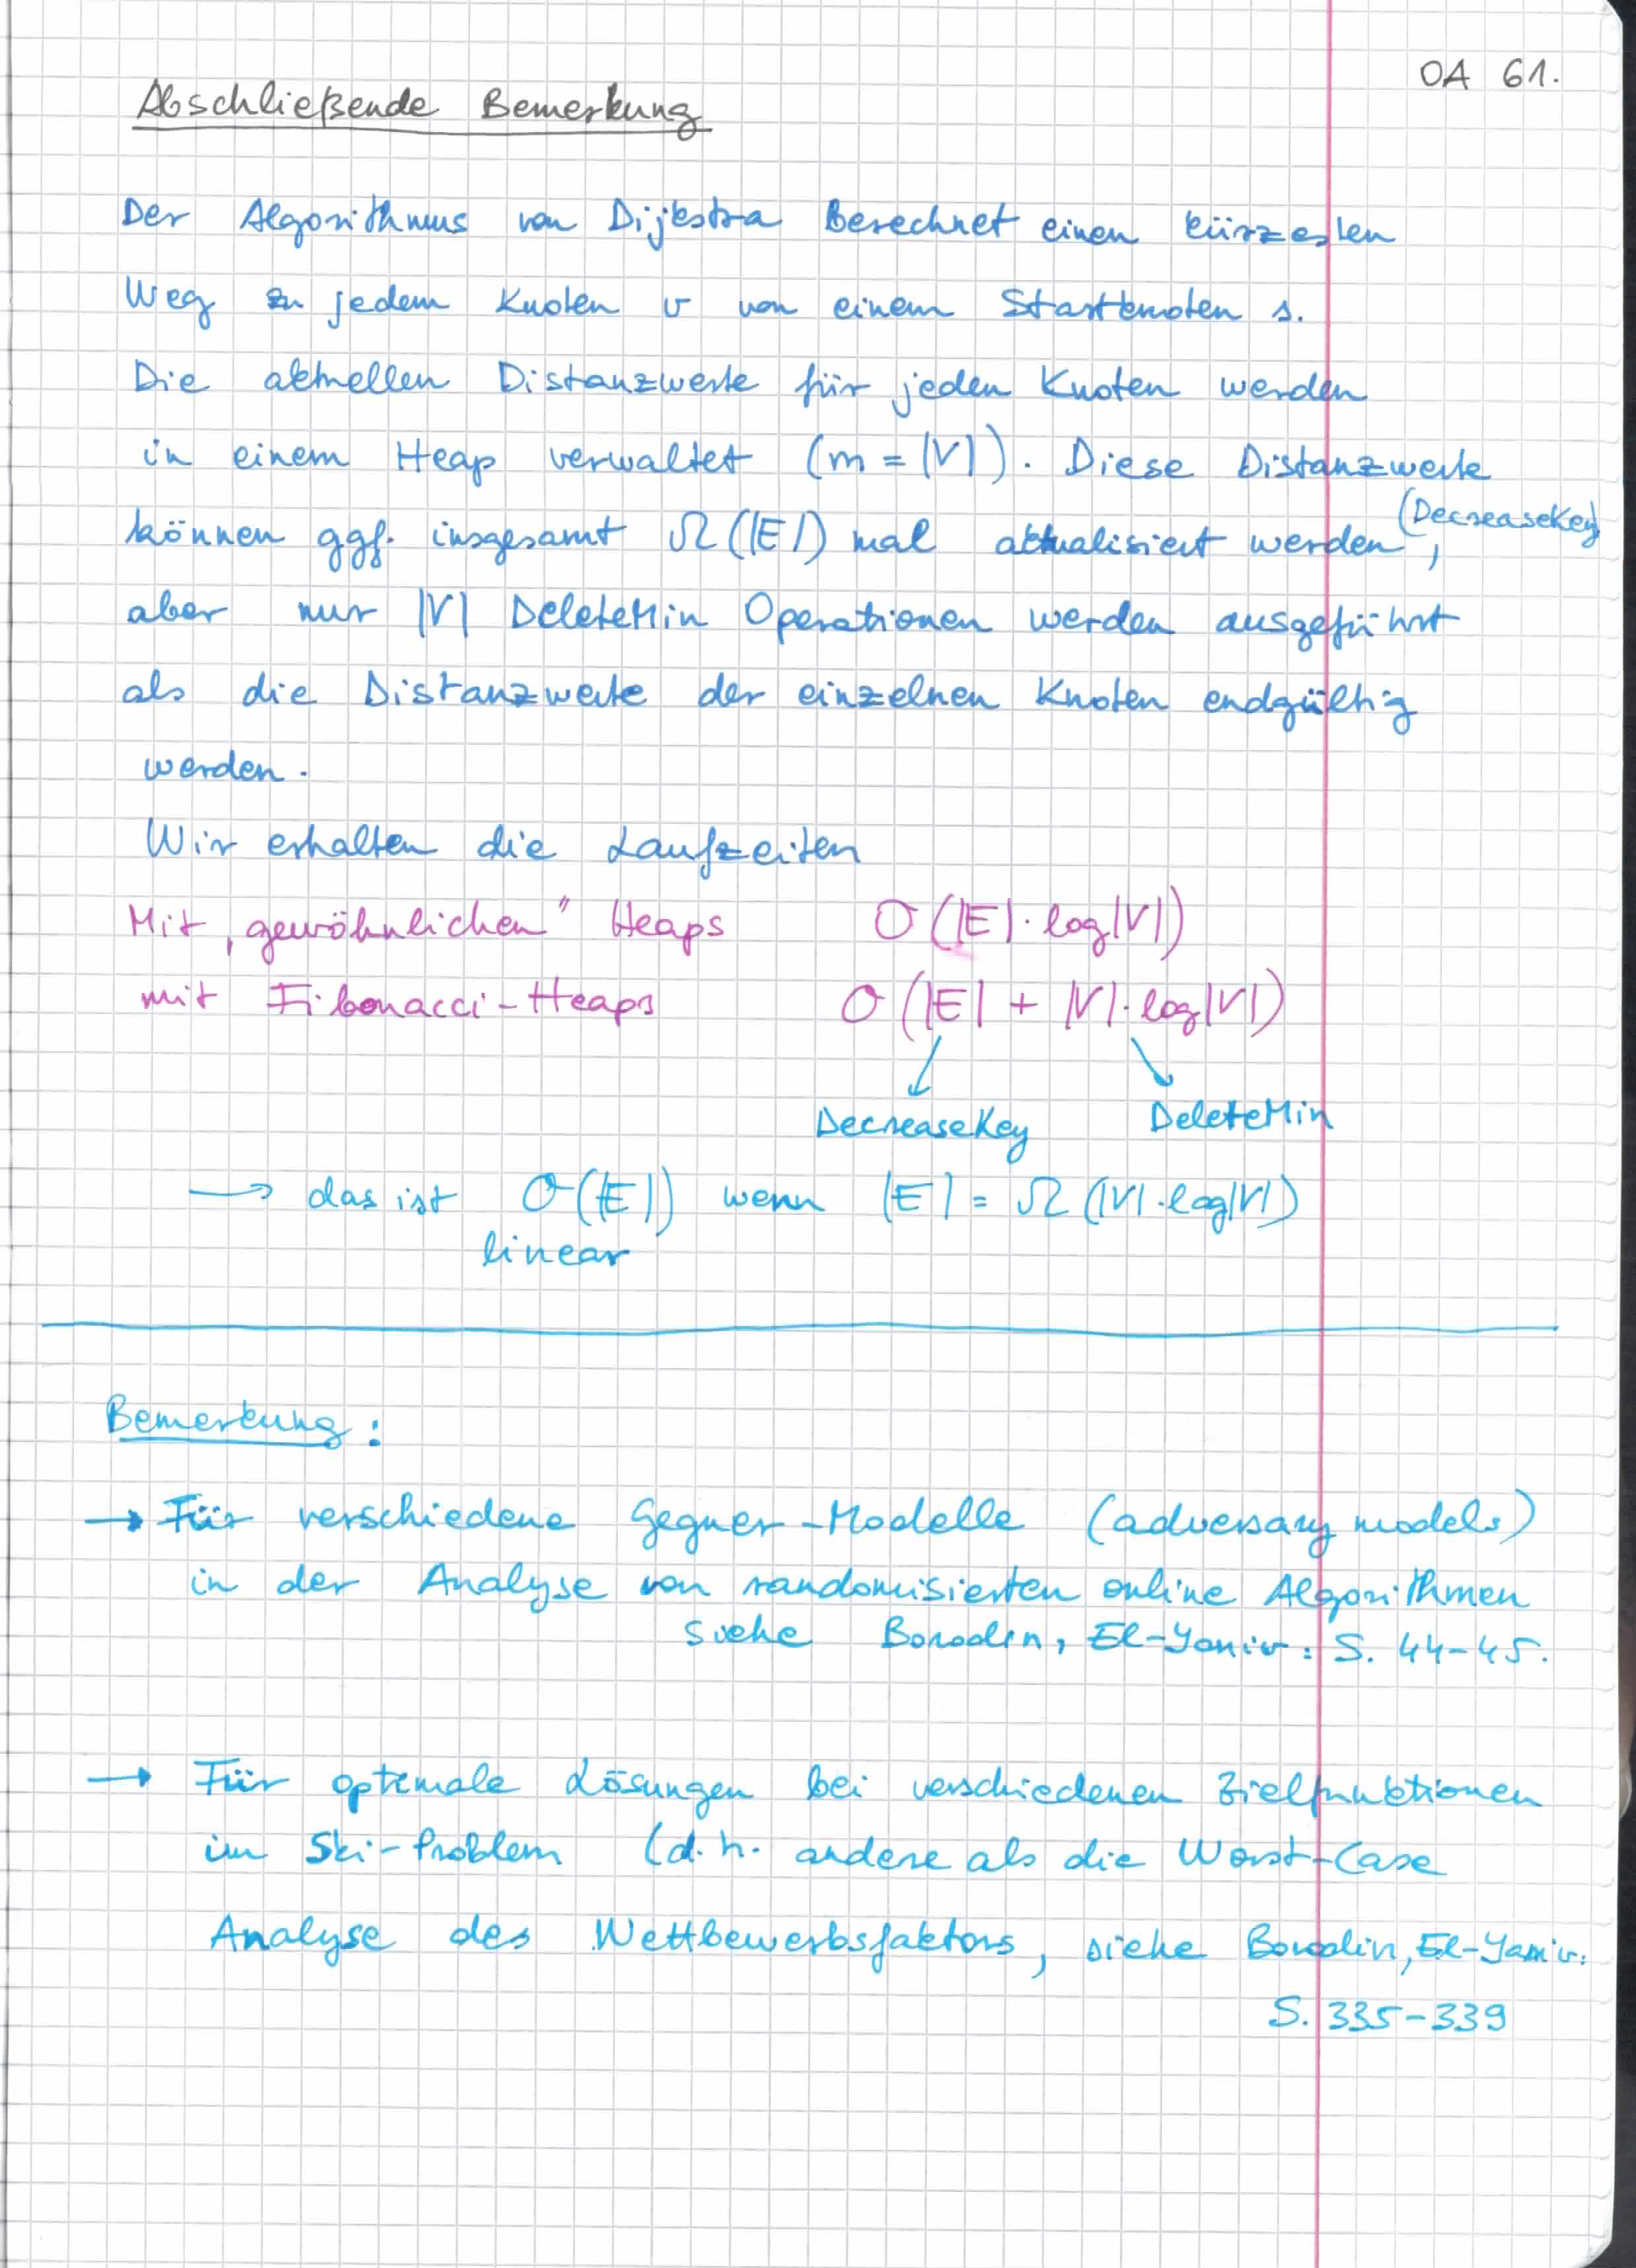 OA 61.
Abschließende Bemerkung
Der Algorithmus von Dijkstra Berechnet einen kürzesten
Weg zu jedem Knoten v von einem Startknoten s.
Die aktuellen Distanzwerte für jeden Knoten werden
in einem Heap verwaltet (m = |V|). Diese Distanzwerte
können ggf. insgesamt Ω(|E|) mal aktualisiert werden (DecreaseKey),
aber nur |V| DeleteMin Operationen werden ausgeführt
als die Distanzwerte der einzelnen Knoten endgültig
werden.
Wir erhalten die Laufzeiten
Mit „gewöhnlichen" Heaps O(|E|·log|V|)
mit Fibonacci-Heaps O(|E| + |V|·log|V|)
DecreaseKey DeleteMin
→ das ist O(|E|) wenn |E| = Ω(|V|·log|V|)
linear
Bemerkung:
→ Für verschiedene Gegner-Modelle (adversary models)
in der Analyse von randomisierten online Algorithmen
siehe Borodin, El-Yaniv: S. 44-45.
→ Für optimale Lösungen bei verschiedenen Zielfunktionen
im Ski-Problem (d.h. andere als die Worst-Case
Analyse des Wettbewerbsfaktors, siehe Borodin, El-Yaniv:
S. 335-339